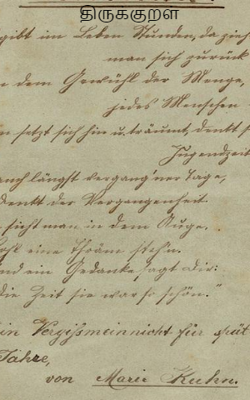 திருக்குறள்
gibt im Leben Stunden, da zieht
man sich zurück
dem Gewühl der Menge,
jedes Menschen
setzt sich hin u. träumt, denkt
Jugendzeit
auch längst vergang'ner Tage,
denkt der Vergangenheit.
sieht man in dem Auge
eine Thräne steh'n.
und ein Gedanke sagt dir:
die Zeit sie war so schön."
ein Vergissmeinnicht für spät
Jahre,
von Marie Kuhn.